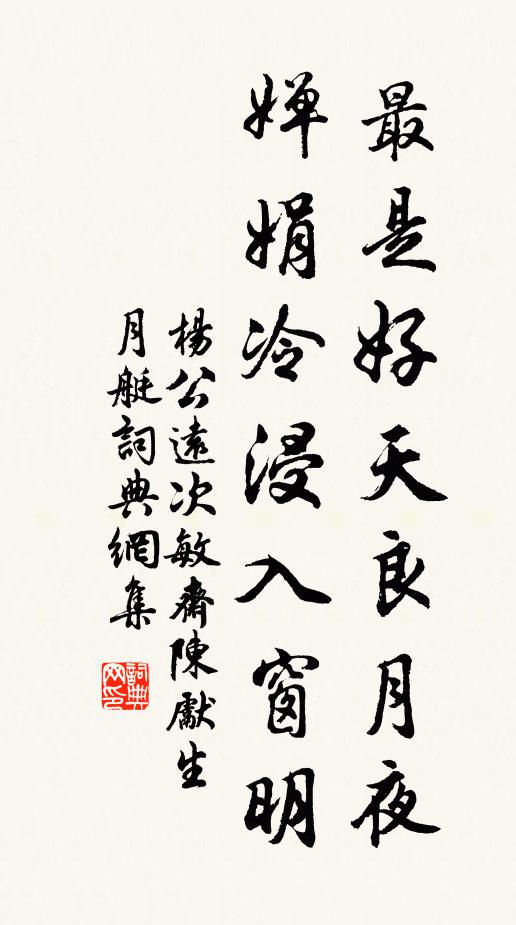 最是好天良月夜
嬋娟冷浸入窗明
楊公遠次敏齋陳獻生
月艇詞典網集
詞典网印